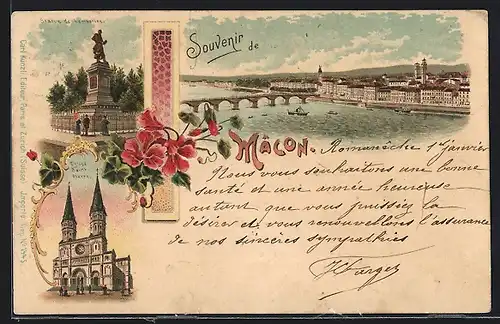 Statue de Lamartine.
Souvenir de
Mâcon.
Eglise
Saint
Pierre.
Romanèche 1er Janvier
Nous vous souhaitons une bonne
santé et une année heureuse
autant que vous puissiez la
désirer et vous renouvellons l'assurance
de nos sincères sympathies